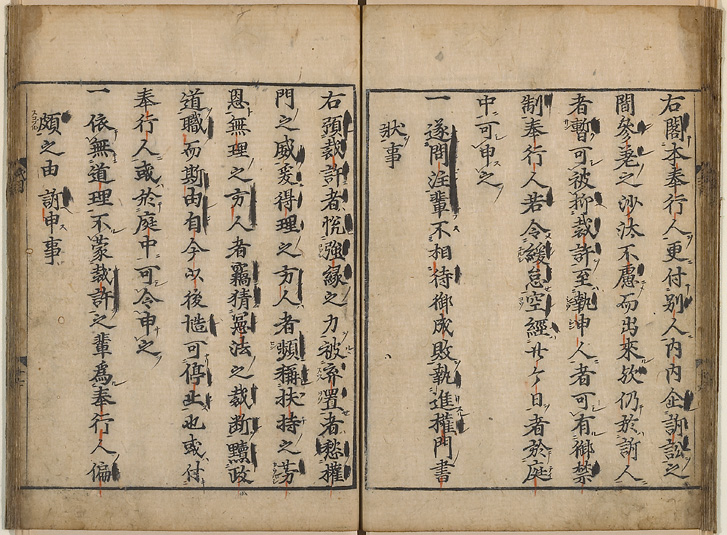 右閣本奉行人更付別人内内企訴訟之
間參差之沙汰不慮而出來欤仍於訴人
者暫可被抑裁許至執申人者可有御禁
制奉行人若令緩怠空經廿ケ日者於庭
中可申之
一 遂問注輩不相待御成敗執進權門書
狀事
右預裁許者悅強縁之力被弃置者愁權
門之威爰得理之方人者頻稱扶持之芳
恩無理之方人者竊猜憲法之裁断黷政
道職而斯由自今以後慥可停止也或付
奉行人或於庭中可令申之
一 依無道理不蒙裁許之輩爲奉行人偏
頗之由訴申事